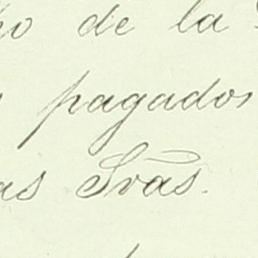 de la
pagados
as Sras.